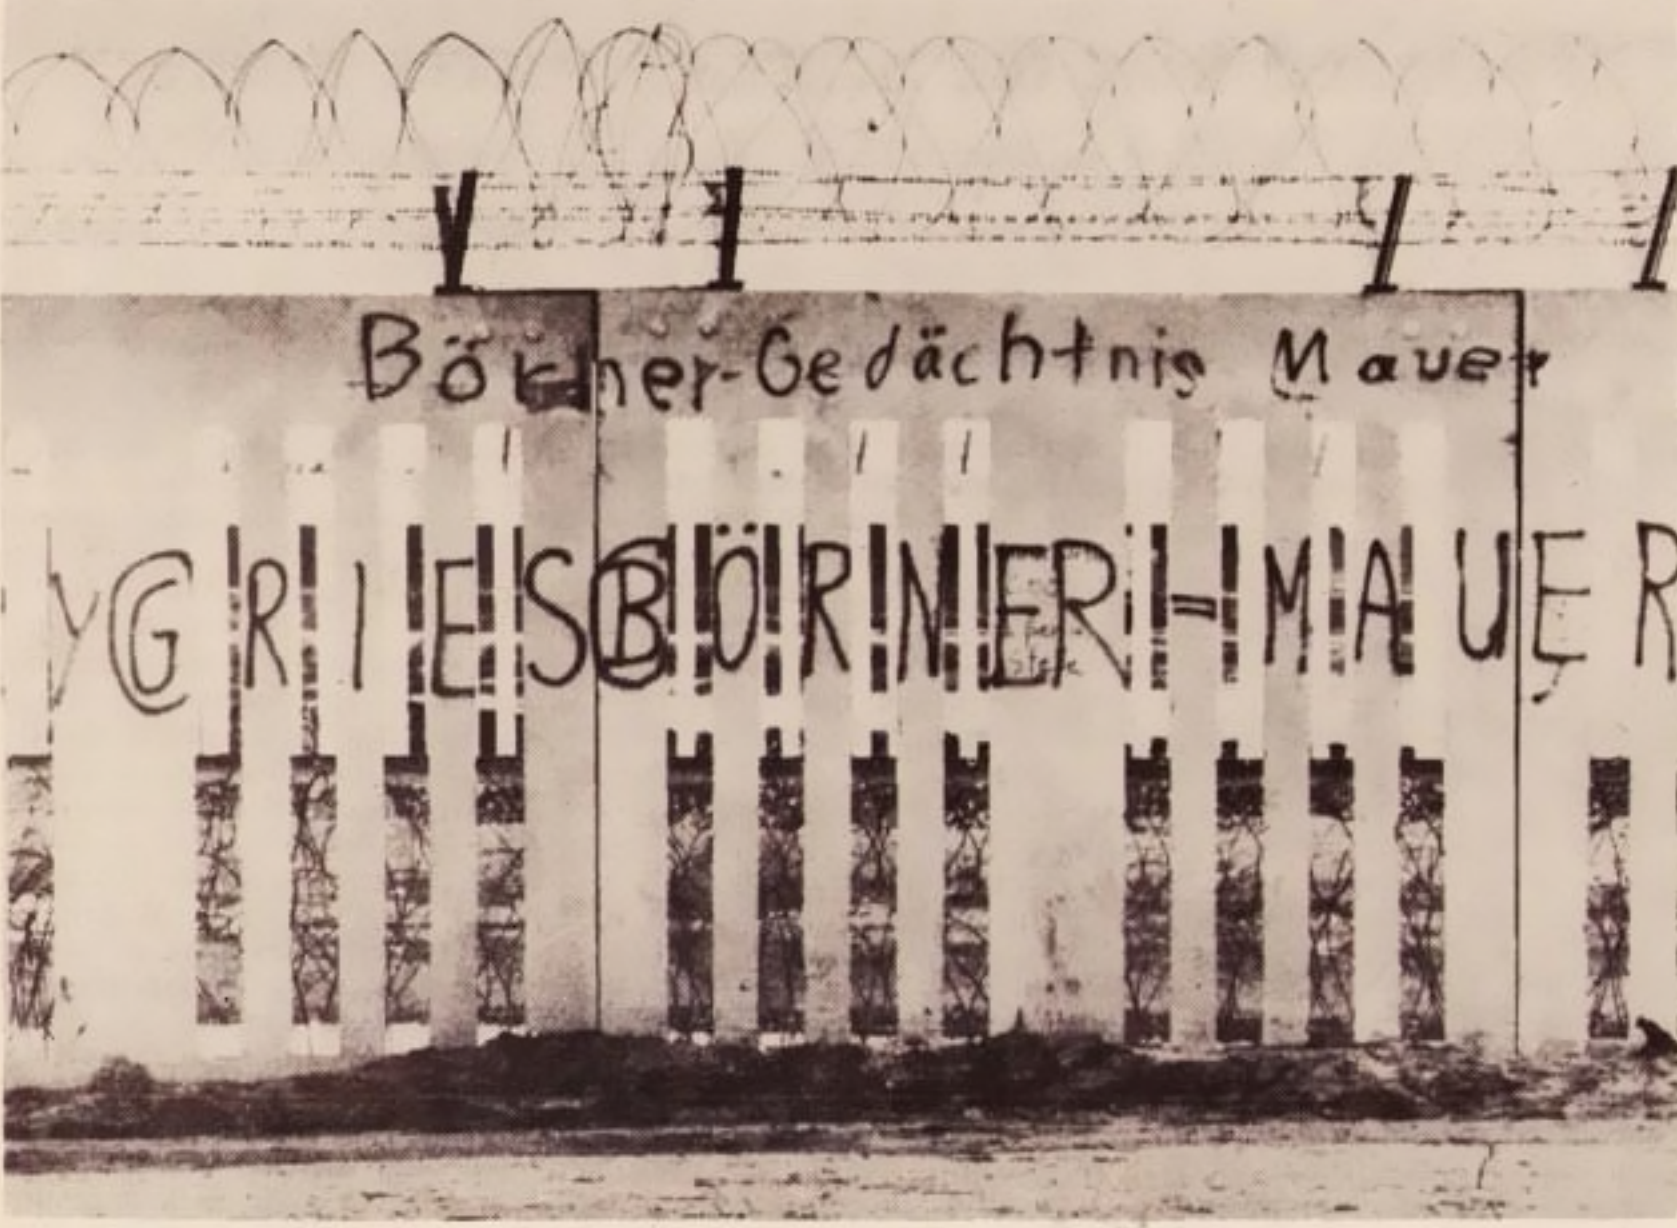 Börner-Gedächtnis Mauer
GRIESBÖRNER=MAUER